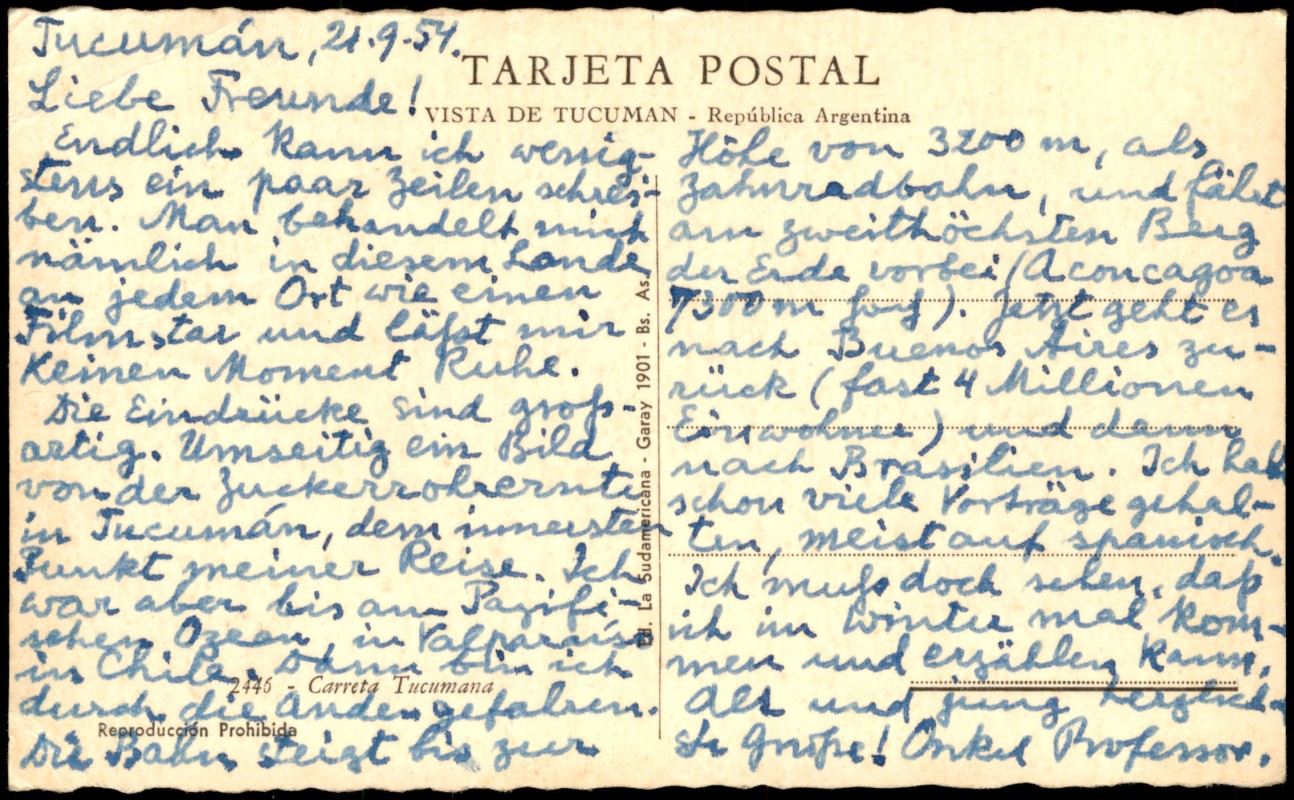 Tucumán, 21.9.54.
Liebe Freunde!
Endlich kann ich wenig-
stens ein paar Zeilen schrei-
ben. Man behandelt mich
nämlich in diesem Lande
an jedem Ort wie einen
Filmstar und läßt mir
keinen Moment Ruhe.
Die Eindrücke sind groß-
artig. Umseitig ein Bild
von der Zuckerrohrernte
in Tucumán, dem innersten
Punkt meiner Reise. Ich
war aber bis am Pazifi-
schen Ozean, in Valparaiso
in Chile. Dann bin ich
durch die Anden gefahren.
Die Bahn steigt bis zur
TARJETA POSTAL
VISTA DE TUCUMAN - República Argentina
Ed. La Sudamericana - Garay 1901 - Bs. As.
2446 - Carreta Tucumana
Reproducción Prohibida
Höhe von 3200 m, als
Zahnradbahn, und fährt
am zweithöchsten Berg
der Erde vorbei (Aconcagoa
7300 m hoch). Jetzt geht es
nach Buenos Aires zu-
rück (fast 4 Millionen
Einwohner) und dann
nach Brasilien. Ich habe
schon viele Vorträge gehal-
ten, meist auf spanisch.
Ich muß doch sehen, daß
ich im Winter mal kom-
men und erzählen kann.
Alt und jung herzlich-
ste Grüße! Onkel Professor.